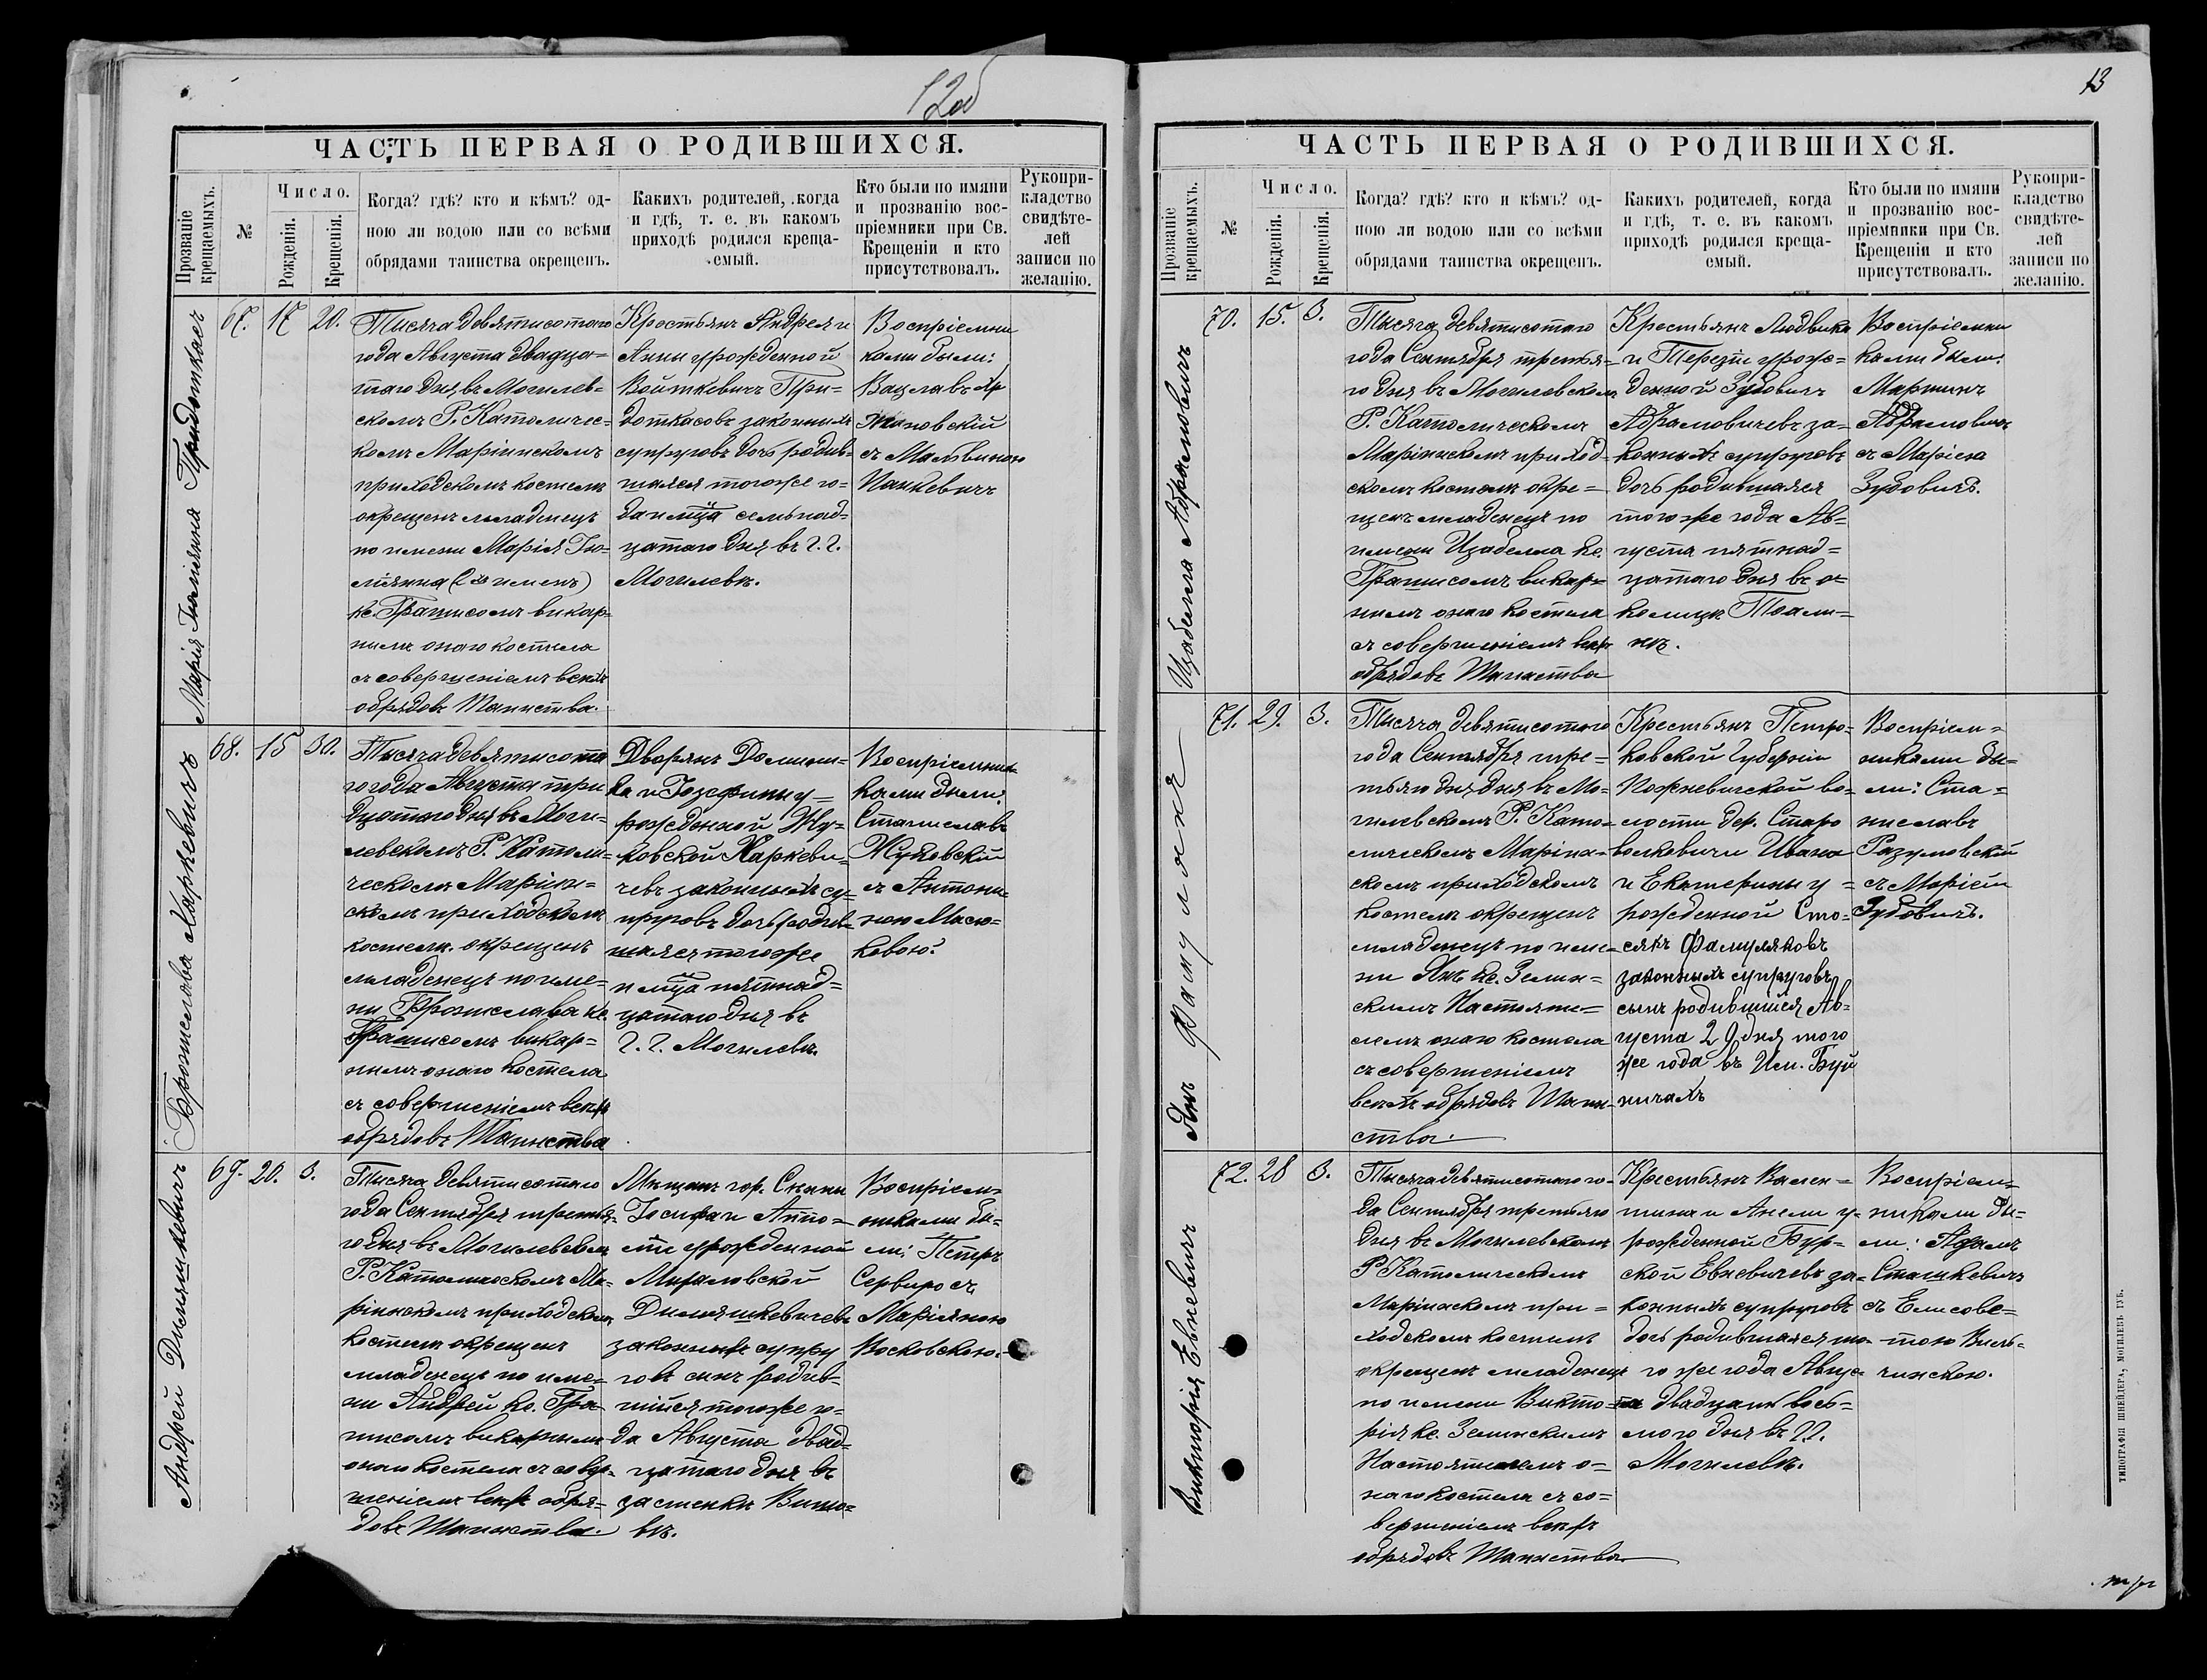 12об
ЧАСТЬ ПЕРВАЯ О РОДИВШИХСЯ.
Прозваніе крещаемыхъ.
№
Число.
Рожденія.
Крещенія.
Когда? гдѣ? кто и кѣмъ? од-
ною ли водою или со всѣми
обрядами таинства окрещенъ.
Какихъ родителей, когда
и гдѣ, т. е. въ какомъ
приходѣ родился креща-
емый.
Кто были по имяни
и прозванію вос-
пріемники при Св.
Крещеніи и кто
присутствовалъ.
Рукопри-
кладство
свидѣте-
лей
записи по
желанію.
Марія Придоткасъ
67. 17 20.
Тысяча девятисотаго
года Августа двадца-
таго дня въ Могилев-
скомъ Р. Католичес-
комъ Маріинскомъ
приходскомъ костелѣ
окрещенъ младенецъ
по имени Марія Ю-
ліянна (2хъ именъ)
Кс. Грацисомъ викар-
нымъ онаго костела
съ совершеніемъ всѣхъ
обрядовъ Таинства.
Крестьянъ Андрея и
Анны урожденной
Войткевичъ При-
доткасовъ законныхъ
супруговъ дочь родив-
шаяся того же го-
да и мѣсяца семьнад-
цатаго дня въ г. г.
Могилевѣ.
Воспріемни
ками были:
Вацлавъ
жановскій
съ Мальвиною
Панкевичъ
Бронислава Маркевичъ
68. 15 30.
Тысяча девятисота
го года Августа три
дцатаго дня въ Моги-
левскомъ Р. Католи-
ческомъ Маріин-
скомъ приходскомъ
костелѣ окрещенъ
младенецъ по име-
ни Бронислава кс.
Грацисомъ викар-
нымъ онаго костела
съ совершеніемъ всѣхъ
обрядовъ Таинства
Дворянъ Домини-
ка и Іозефины у-
рожденной Жу-
ковской Маркеви-
чевъ законныхъ су-
пруговъ дочь родив-
шаяся того же
и мѣсяца пятнад-
цатаго дня въ
г. г. Могилевѣ.
Воспріемни-
ками были:
Станиславъ
Жуковскій
съ Антони-
ною Масю-
ковою.
Андрей Дилюшкевичъ
69. 20. 3.
Тысяча девятисотаго
года Сентября третья-
го дня въ Могилевскомъ
Р. Католическомъ Ма-
ріинскомъ приходскомъ
костелѣ окрещенъ
младенецъ по име-
ни Андрей Кс. Гра-
цисомъ викарнымъ
онаго костела съ совер-
шеніемъ всѣхъ обря-
довъ Таинства.
Мѣщанъ гор.
Іосифа и Аппо-
урожденной
законныхъ супру
говъ сынъ родив-
шійся того же го-
да Августа двад-
цатаго дня въ
застенкѣ
вѣ.
Воспріем-
никами бы-
ли: Петръ
съ
Маріяною
Восковскою.
13
ЧАСТЬ ПЕРВАЯ О РОДИВШИХСЯ.
Прозваніе крещаемыхъ.
№
Число.
Рожденія.
Крещенія.
Когда? гдѣ? кто и кѣмъ? од-
ною ли водою или со всѣми
обрядами таинства окрещенъ.
Какихъ родителей, когда
и гдѣ, т. е. въ какомъ
приходѣ родился креща-
емый.
Кто были по имяни
и прозванію вос-
пріемники при Св.
Крещеніи и кто
присутствовалъ.
Рукопри-
кладство
свидѣте-
лей
записи по
желанію.
Изабелла Абрамовичъ
70. 15. 3.
Тысяча девятисотаго
года Сентября третья-
го дня въ Могилевскомъ
Р. Католическомъ
Маріинскомъ приход-
скомъ костелѣ окре-
щенъ младенецъ по
имени Изабелла Кс.
Грацисомъ викар-
нымъ онаго костела
съ совершеніемъ всѣхъ
обрядовъ Таинства
Крестьянъ Людвика
и Терезіи урож-
денной Зубовичъ
Абрамовичевъ за-
конныхъ супруговъ
дочь родившаяся
того же года Ав-
густа пятнад-
цатаго дня въ о-
колицѣ
нѣ.
Воспріемни
ками были:
Мартинъ
Абрамовичъ
съ Маріею
Зубовичъ.
Янъ Фамулякъ
71. 29. 3.
Тысяча девятисотаго
года Сентября тре-
тьяго дня дня въ Мо-
гилевскомъ Р. Като-
лическомъ Маріин-
скомъ приходскомъ
костелѣ окрещенъ
младенецъ по име-
ни Янъ Кс. Зелин-
скимъ Настояте-
лемъ онаго костела
съ совершеніемъ
всѣхъ обрядовъ Таин-
ства.
Крестьянъ Петро-
ковской Губерніи
во-
лости дер. Старо
волковичи Ивана
и Екатерины у-
рожденной Сто-
сякъ Фамуляковъ
законныхъ супруговъ
сынъ родившійся Ав-
густа 29 дня того
же года въ Им. Буй
ничахъ
Воспріем-
никами бы-
ли: Ста-
ниславъ
Разумовскій
съ Маріею
Зубовичъ.
Викторія Евневичъ
72. 28 3.
Тысяча девятисотаго го-
да Сентября третьяго
дня въ Могилевскомъ
Р Католическомъ
Маріинскомъ при-
ходскомъ костелѣ
окрещенъ младенецъ
по имени Викто-
рія Кс. Зелинскимъ
Настоятелемъ о-
наго костела съ со-
вершеніемъ всѣхъ
обрядовъ Таинства
Крестьянъ Вален-
тина и Анели у-
рожденной Бур-
ской Евневичевъ за-
конныхъ супруговъ
дочь родившаяся то-
го же года Авгус-
та двадцать вось-
мого дня въ г. г.
Могилевѣ.
Воспріем-
никами бы-
ли: Адамъ
Сташкевичъ
съ Елисаве-
тою Виль-
чинскою.
ТИПОГРАФІЯ ШНЕЙДЕРА, МОГИЛЕВЪ ГУБ.